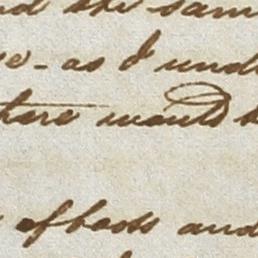 nd the same
e - as I und
there would b
of books and